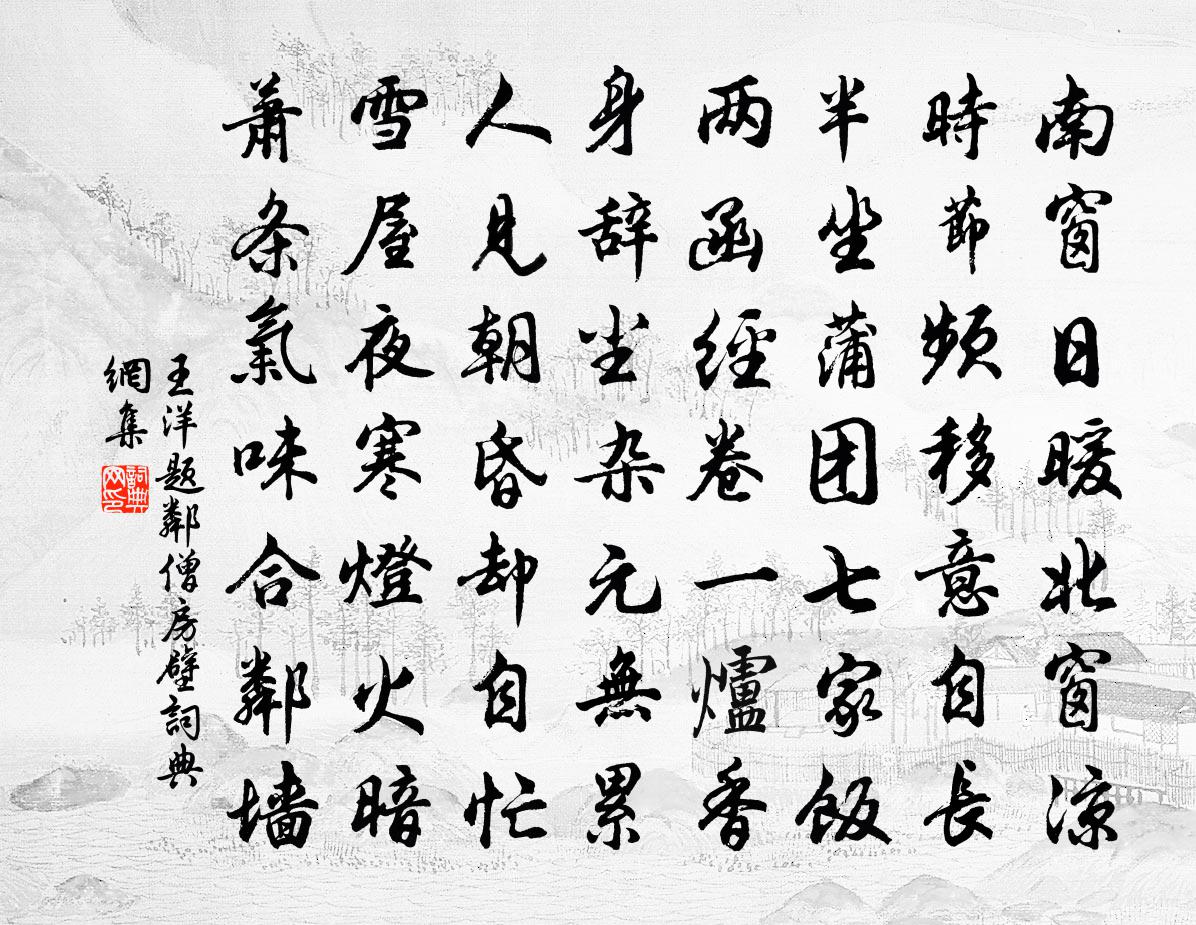 南窗日暖北窗凉
時節頻移意自長
半坐蒲团七家飯
两函經卷一爐香
身辞尘杂元無累
人見朝昏却自忙
雪屋夜寒燈火暗
蕭条氣味合鄰墙
王洋題鄰僧房壁詞典
網集
詞典网印